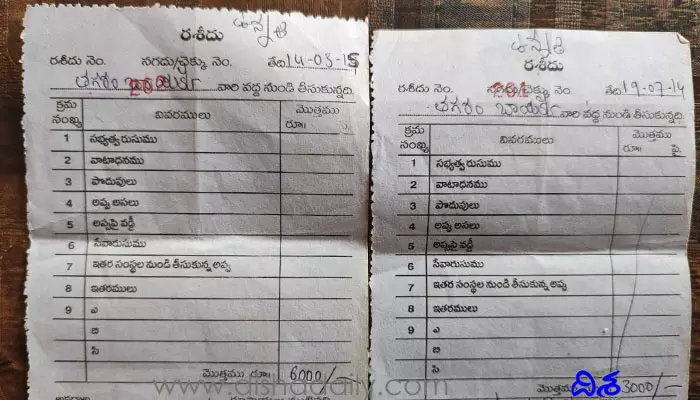 ఉన్నతి
రశీదు
రశీదు నెం. నగదు/చెక్కు నెం. తేది 14-03-15
201
తగరం బాయమ్మ వారి వద్ద నుండి తీసుకున్నది.
క్రమ సంఖ్య వివరములు మొత్తము రూ॥ పై.
1 సభ్యత్వరుసుము
2 వాటాధనము
3 పొదుపులు
4 అప్పు అసలు
5 అప్పుపై వడ్డీ
6 సేవారుసుము
7 ఇతర సంస్థల నుండి తీసుకున్న అప్పు
8 ఇతరములు
9 ఎ
బి
సి
మొత్తము రూ॥ 6000/-
రశీదు
రశీదు నెం. నగదు/చెక్కు నెం. తేది 19-07-14
201
తగరం బాయమ్మ వారి వద్ద నుండి తీసుకున్నది.
క్రమ సంఖ్య వివరములు మొత్తము రూ॥ పై.
1 సభ్యత్వరుసుము
2 వాటాధనము
3 పొదుపులు
4 అప్పు అసలు
5 అప్పుపై వడ్డీ
6 సేవారుసుము
7 ఇతర సంస్థల నుండి తీసుకున్న అప్పు
8 ఇతరములు
9 ఎ
బి
సి
మొత్తము 3000/-
దిశ
www.dishadaily.com